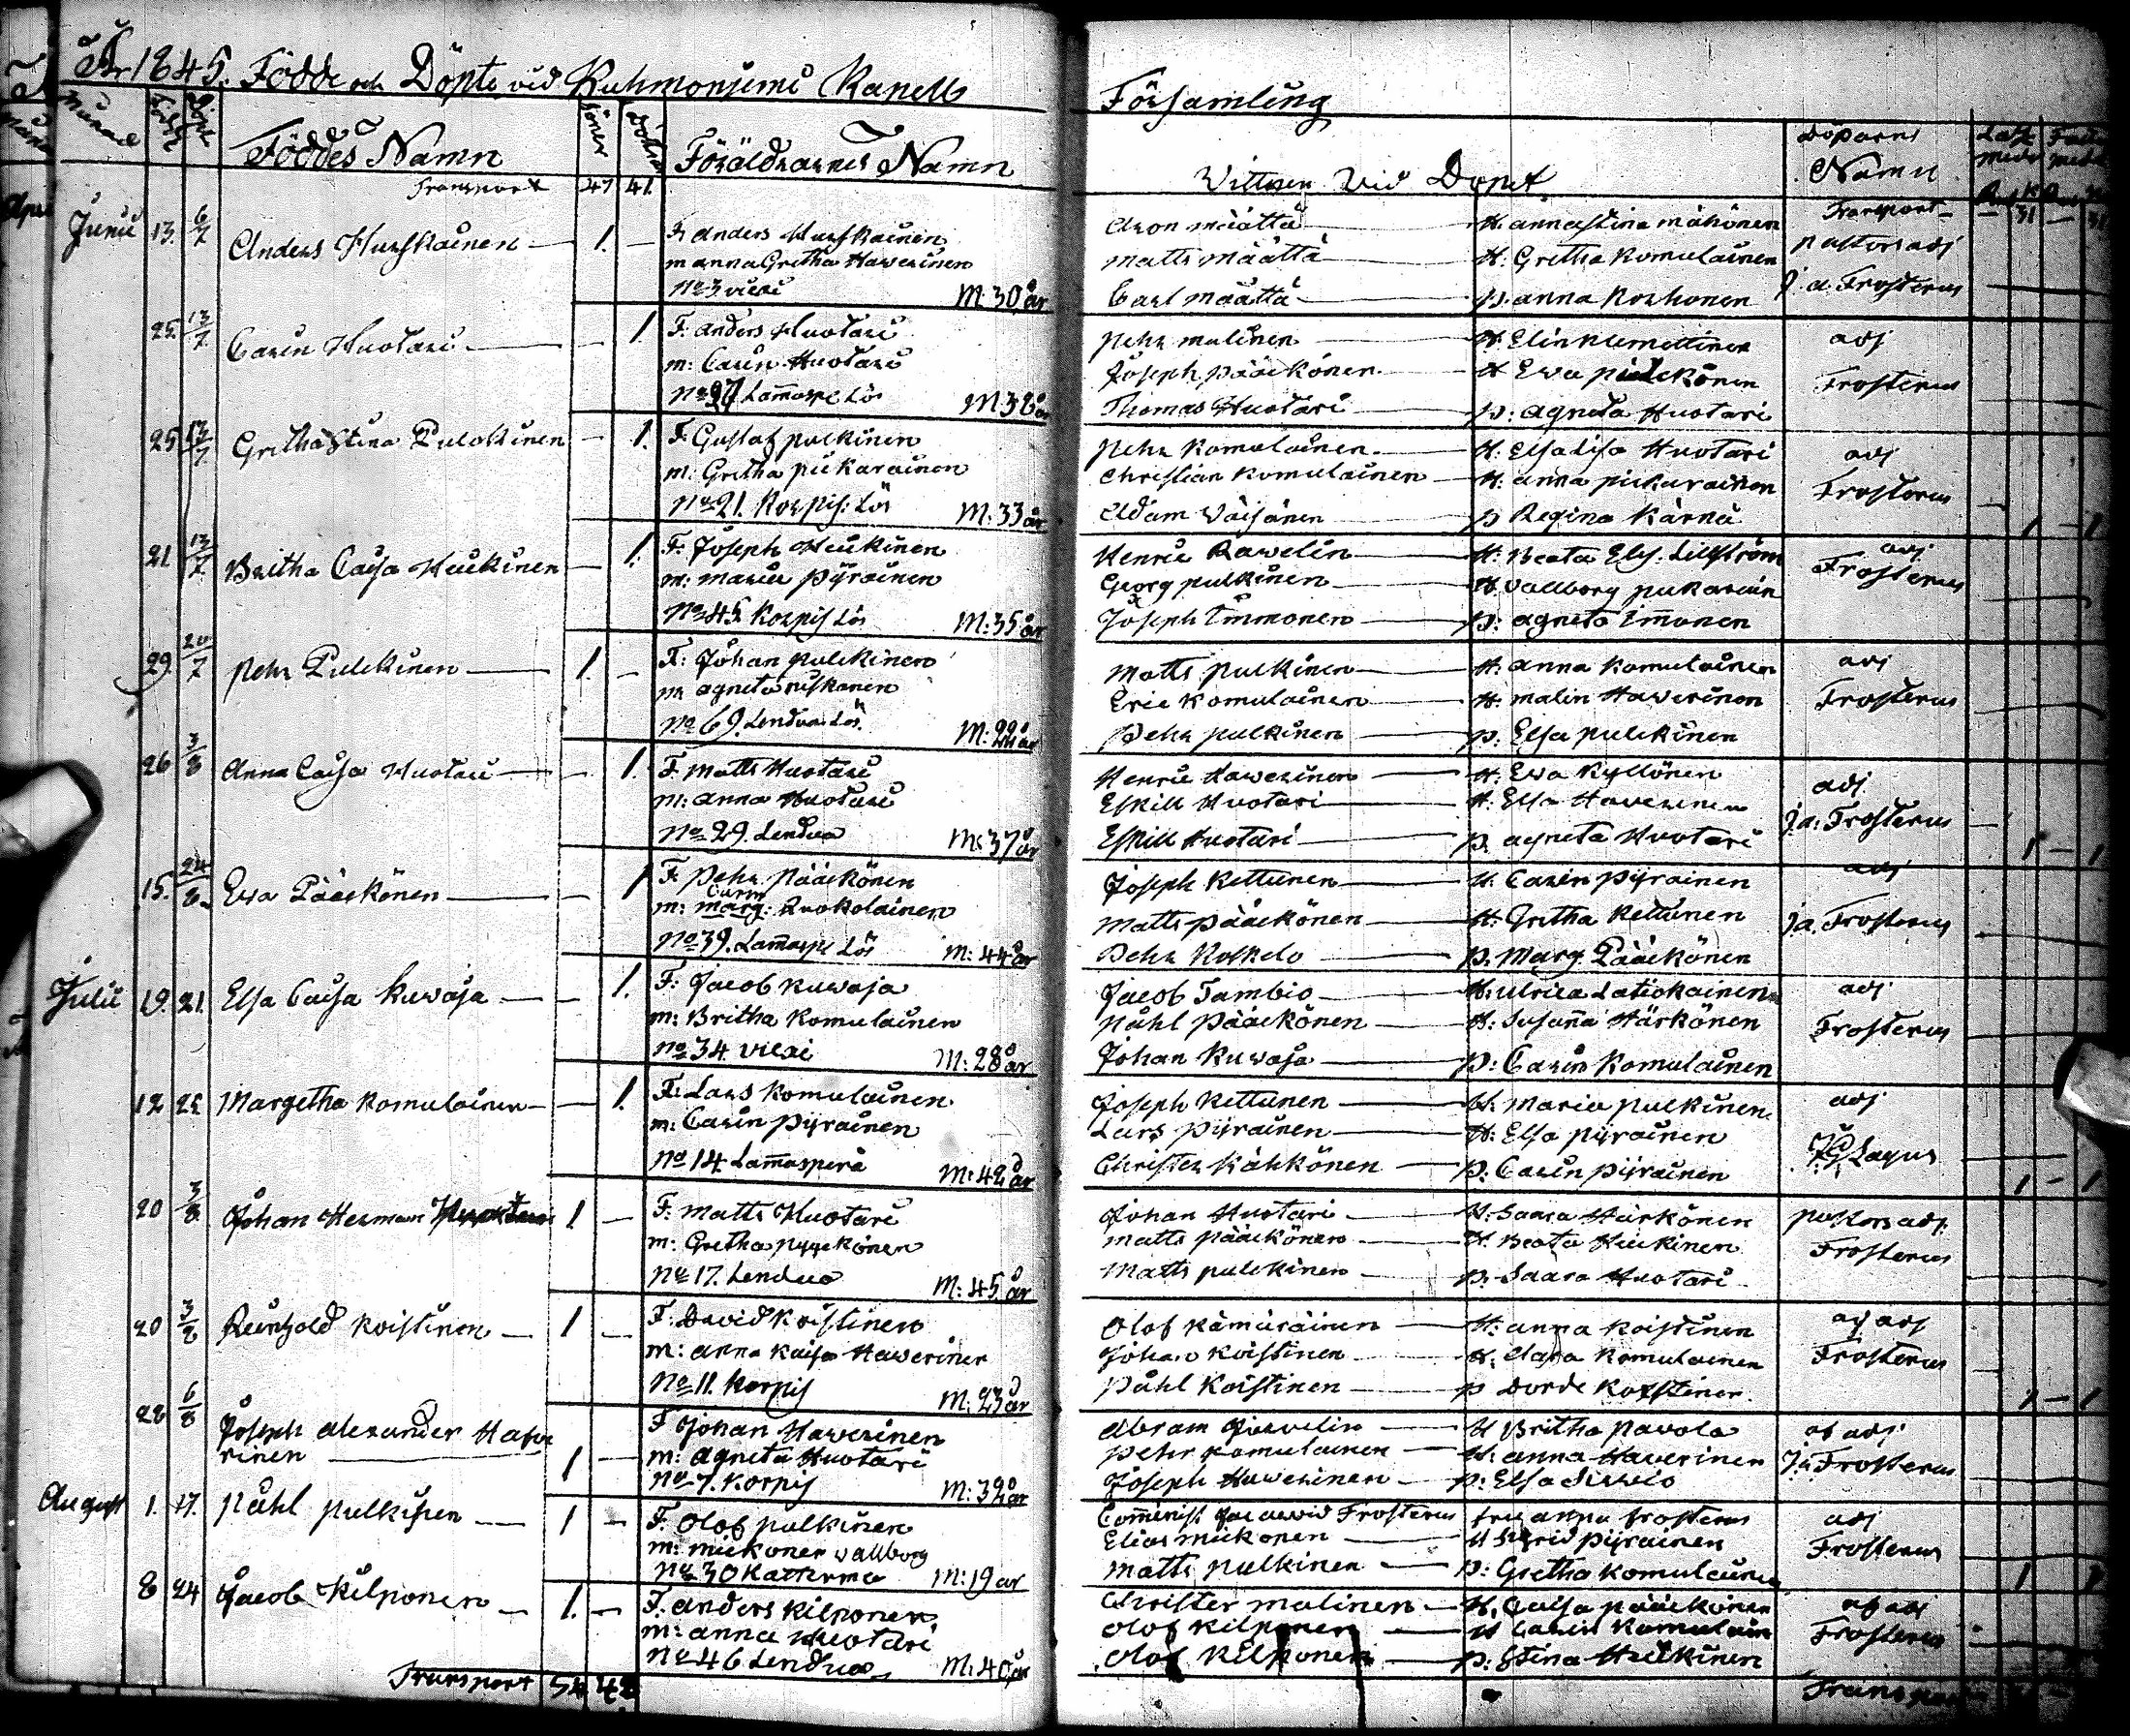 År 1845. Födde och Döpte vid Kuhmoniemi Kapells Församling
Månad Född Döpt Föddes Namn Söner Döttrar Föräldrarnes Namn
Vittnen vid Dopet Döparens Namn
Transport 47 41 Transport 31
Junii 13. 6/7 Anders Hurskainen 1.
F. Anders Hurskainen
m Anna Gretha Haverinen
No 3 Viexi M: 30 år
Aron Määttä H. Annastina Mähönen Pastors adj
Matts Määttä H. Gretha Komulainen
Carl Määttä p. Anna Korhonen J. a. Frosterus
25. 13/7 Carin Huotari 1.
F. Anders Huotari
m: Carin Huotari
Lammaspe Lös M: 32 år
Pehr Malinen H. Elin Klemettinen adj
Joseph Pääkkönen H Ewa Frosterus
Thomas Huotari p: Agneta Huotari
25 13/7 Grithastina Pulkkinen 1.
F. Gustaf Pulkinen
m: Gretha Pikarainen
No 21. Korpis: Lös M: 33 år
Pehr Komulainen H: Elsa Lisa Huotari adj
Christian Komulainen H: Anna Pikarainen Frosterus
Adam Väisänen p Regina Kärnä 1 - 1
21 13/7 Britha Caisa Heikinen 1.
F: Joseph Heikinen
m: Maria Pyrainen
No 45 Korpis Lös M: 35 år
Henric Ravelin H: Beata Elis: Lillström adj
Georg Pulkinen H Vallborg Frosterus
Joseph Immonen p: Agneta Immonen
29. 20/7 Pehr Pulkkinen 1.
F: Johan Pulkkinen
m Agneta Niskanen
No 69. Lendua Lös M: 22 år
Matts Pulkinen H. Anna Komulainen adj
Eric Komulainen H. Malin Haverinen Frosterus
Pehr Pulkinen p. Elsa Pulkkinen
26 3/8 Anna Caisa Huotari 1.
F. Matts Huotari
m: Anna Huotari
No 29. Lendua M: 37 år
Henric Haverinen H. Ewa Kyllönen adj
Eskill Huotari H. Elsa Haverinen J. a: Frosterus
Eskill Huotari p. Agneta Huotari 1 - 1
15. 24/8 Ewa Pääkkönen 1
F. Pehr Pääkkönen
Carin
m: Marg: Ruokolainen
No 39. Lammaspe Lös M: 44 år
Joseph Kettunen H. Carin Pyrainen adj
Matts Pääkkönen H. Gretha Kettunen J. a. Frosterus
Pehr p. Marg Pääkkönen
Julii 19. 21. Elsa Caisa Kuvaja 1.
F: Jacob Kuvaja
m: Britha Komulainen
No 34 Viexi M: 28 år
Jacob Tambio H: Ulrica adj
Påhl Pääkkönen H: Susanna Härkönen Frosterus
Johan Kuvaja p: Carin Komulainen
12 25 Margetha Komulainen 1.
F. Lars Komulainen
m: Carin Pyrainen
No 14 Lammasperä M: 42 år
Joseph Kettunen H. Maria Pulkinen adj
Lars Pyrainen H: Elsa Pyrainen Lagus
Christer Kähkönen p. Carin Pyrainen 1 - 1
20 3/8 Johan Herman Huotari 1
F: Matts Huotari
m: Gretha Pyykönen
No 17. Lendua M: 45 år
Johan Huotari H. Saara Härkönen Pastors adj
Matts Pääkkönen H. Beata Heikinen Frosterus
Matts Pulkkinen p. Saara Huotari
20 3/8 Reinhold Koistinen 1
F: David Koistinen
m: Anna Kaisa Haverinen
No 11. Korpis M: 23 år
Olof Kämäräinen H: Anna Koistinen af adj
Johan Koistinen H. Clara Komulainen Frosterus
Påhl Koistinen p Dorde Koistinen 1 - 1
28 6/8 Joseph Alexander Have
rinen 1
F Johan Haverinen
m: Agneta Huotari
No 7. Korpis M: 39 år
Abram H Britha Pavola af adj
Pehr Komulainen H. Anna Haverinen J. a Frosterus
Joseph Haverinen p. Elsa Sirvio
August 1. 17. Påhl Pulkkinen 1
F. Olof Pulkinen
m: Miekonen Vallborg
No 30 Katterma M: 19 år
Frosterus fru Anna Frosterus adj
Elias Miekonen H Pyrainen Frosterus
Matts Pulkinen p: Gretha Komulainen 1 1
8 24 Jacob Kilponen 1.
F. Anders Kilponen
m: Anna Huotari
No 46 Lendua M: 40 år
Christer Malinen H. Caisa Pääkkönen af adj
Olof Kilponen H Carin Komulain Frosterus
Olof Kilponen p. Stina Heikkinen
Transport 54 48 Transport